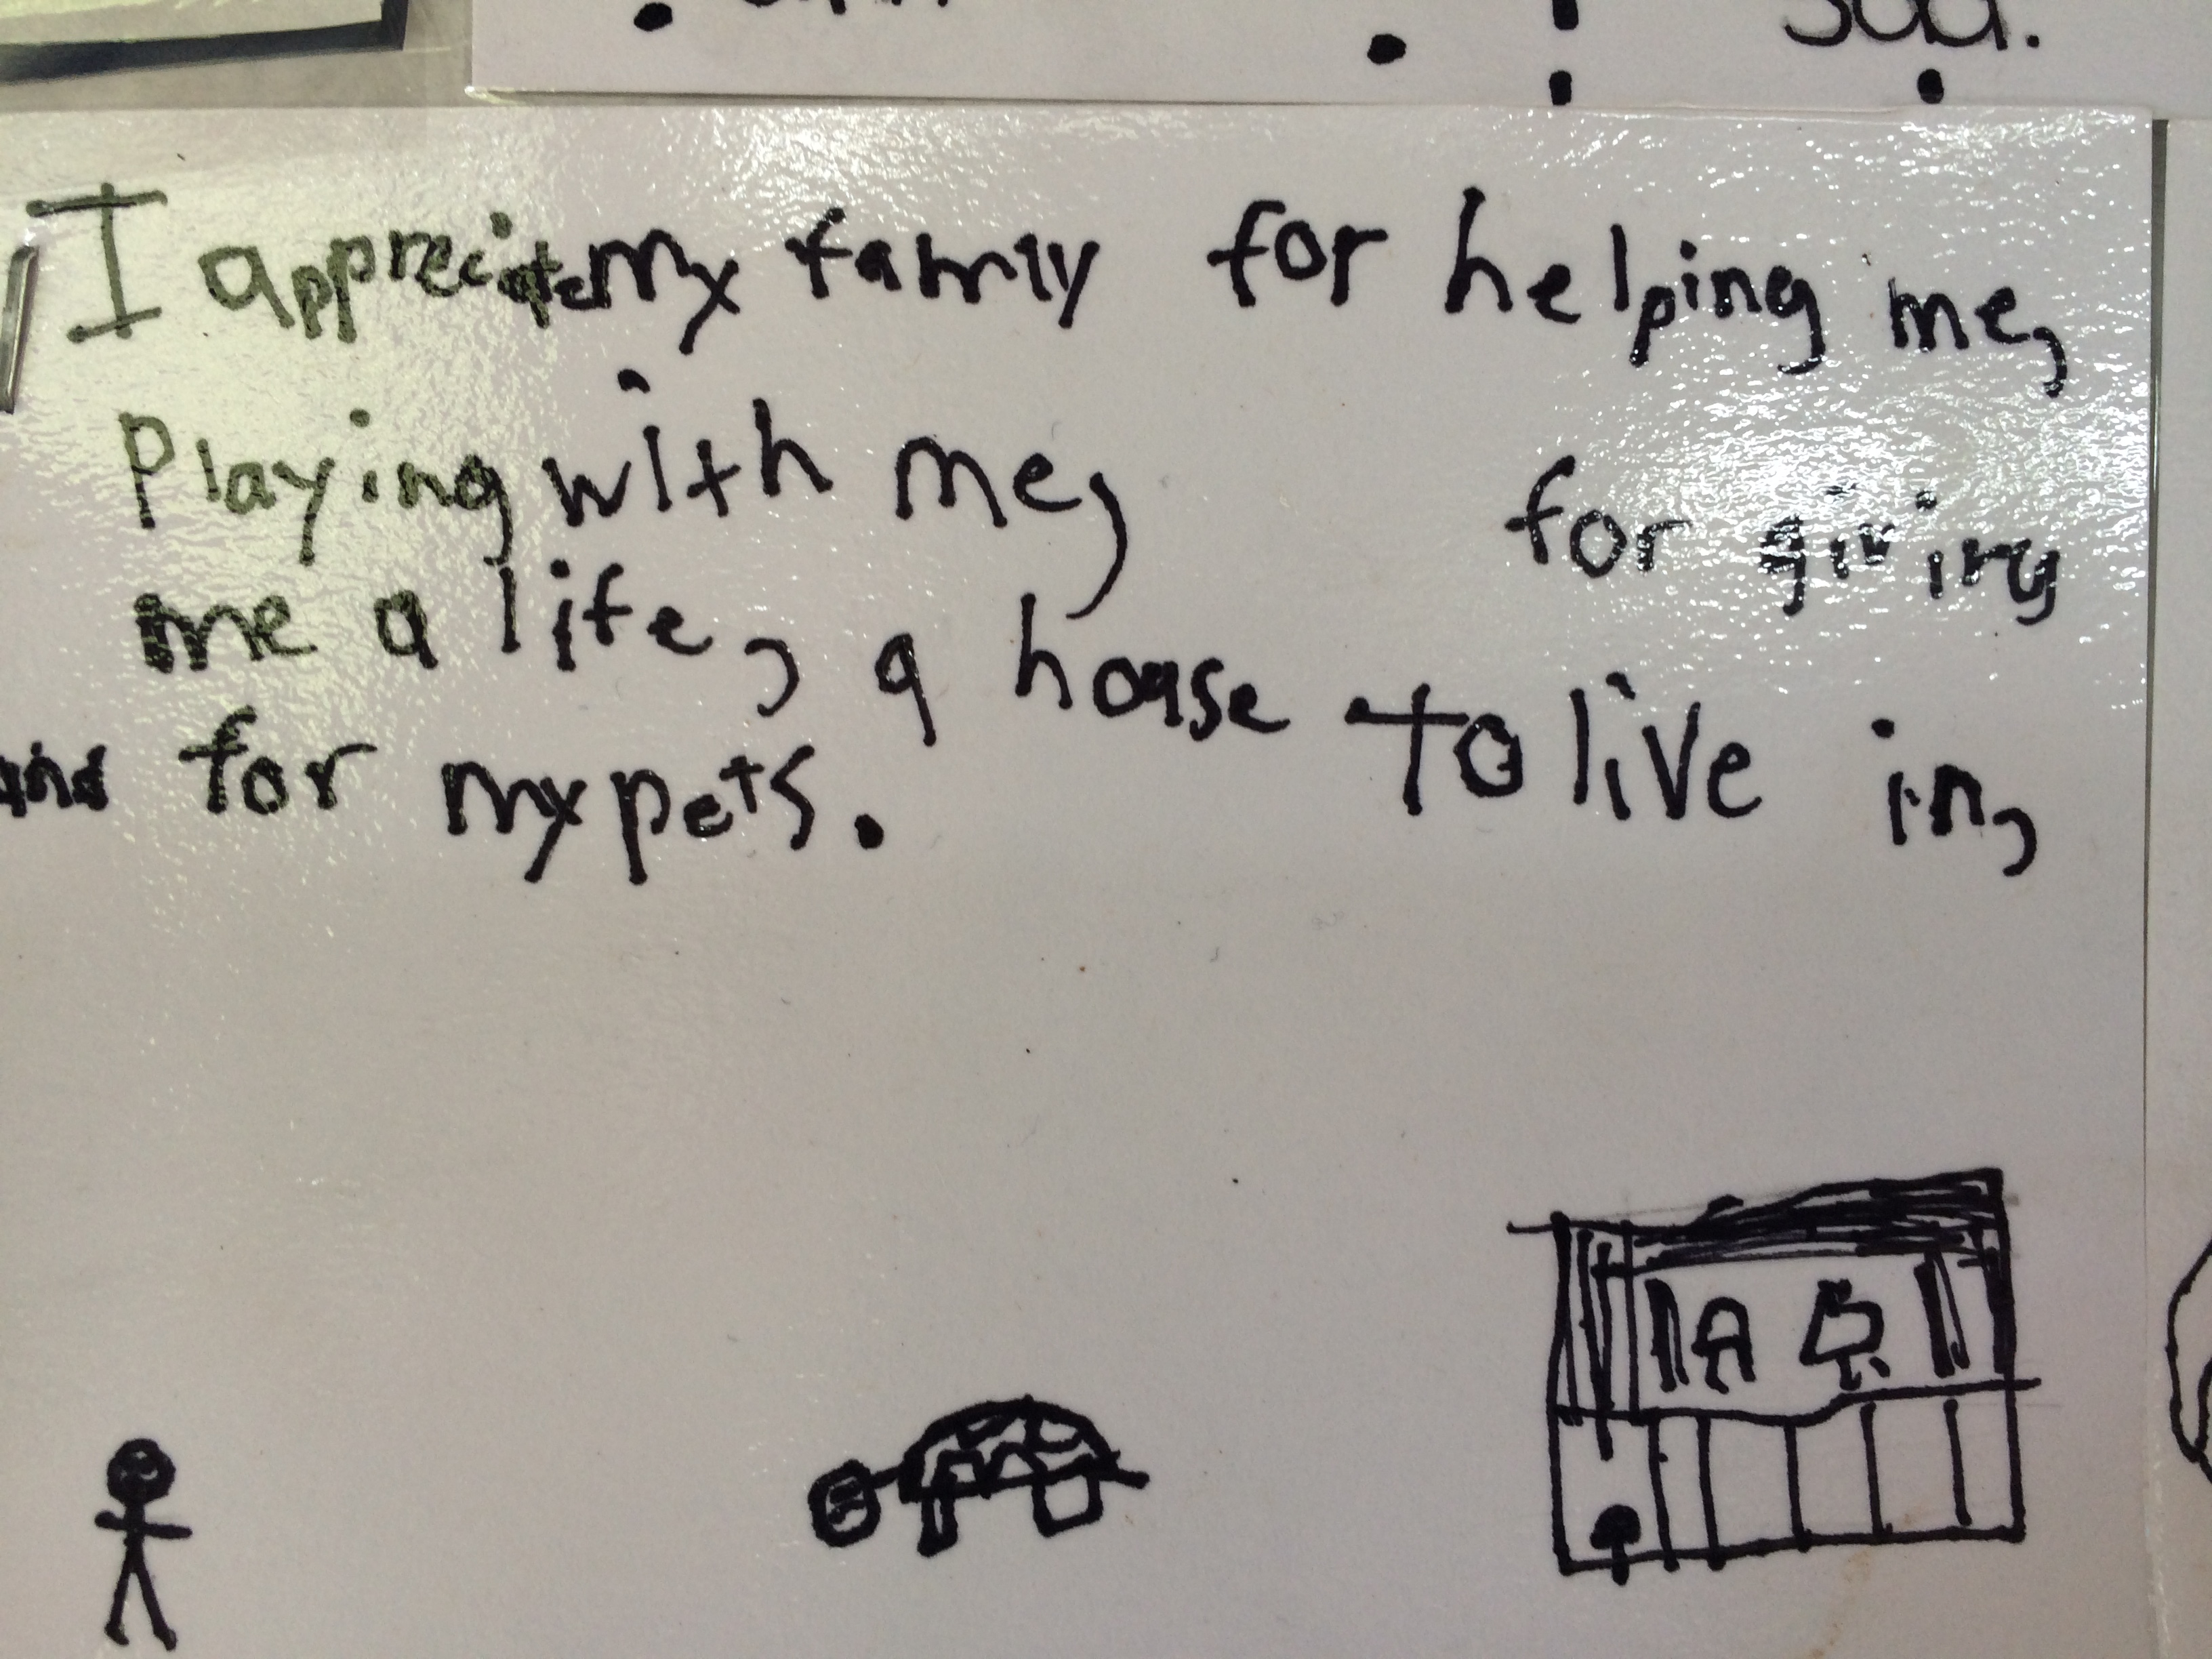 sad.
I appreciate my family for helping me,
Playing with me, for giving
me a life, a house to live in,
and for my pets.